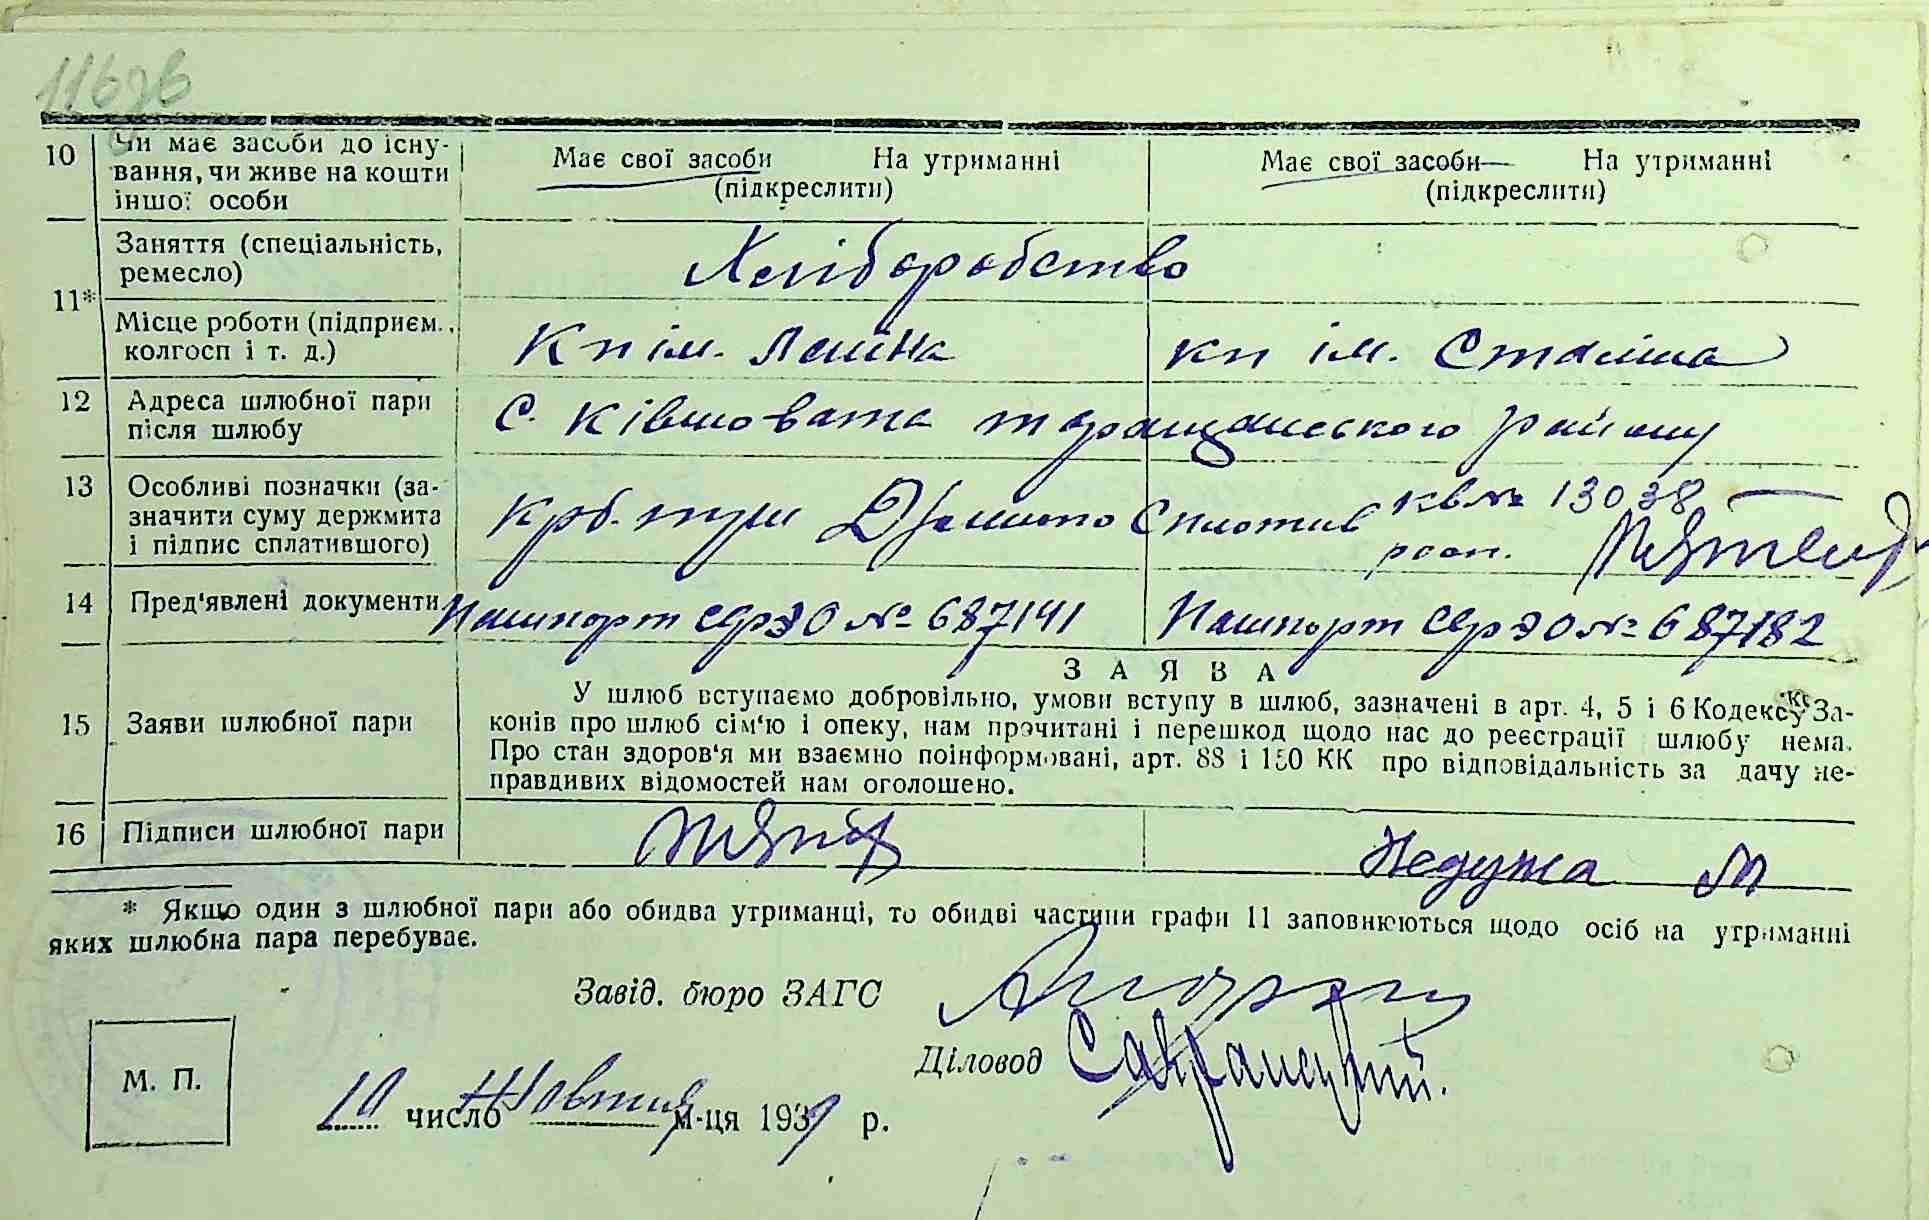 116зв
10 Чи має засоби до існу-
вання, чи живе на кошти
іншої особи
Має свої засоби На утриманні
(підкреслити)
Має свої засоби На утриманні
(підкреслити)
11*
Заняття (спеціальність,
ремесло)
Хліборобство
Місце роботи (підприєм.,
колгосп і т. д.)
Кп ім. Леніна
кп ім. Сталіна
12 Адреса шлюбної пари
після шлюбу
С. Ківшовата таращанського району
13 Особливі позначки (за-
значити суму держмита
і підпис сплатившого)
Крб. три Держмито Сплотив кв № 13038
розп.
14 Пред'явлені документи
Пашпорт сер ЭО № 687141
Пашпорт сер ЭО № 687182
ЗАЯВА
15 Заяви шлюбної пари
У шлюб вступаємо добровільно, умови вступу в шлюб, зазначені в арт. 4, 5 і 6 Кодексу За-
конів про шлюб сім'ю і опеку, нам прочитані і перешкод щодо нас до реєстрації шлюбу нема.
Про стан здоров'я ми взаємно поінформовані, арт. 88 і 150 КК про відповідальність за дачу не-
правдивих відомостей нам оголошено.
16 Підписи шлюбної пари
Недужа М
* Якщо один з шлюбної пари або обидва утриманці, то обидві частини графи 11 заповнюються щодо осіб на утриманні
яких шлюбна пара перебуває.
Завід. бюро ЗАГС
Діловод Савранський.
М. П.
10 число Жовтня м-ця 1939 р.